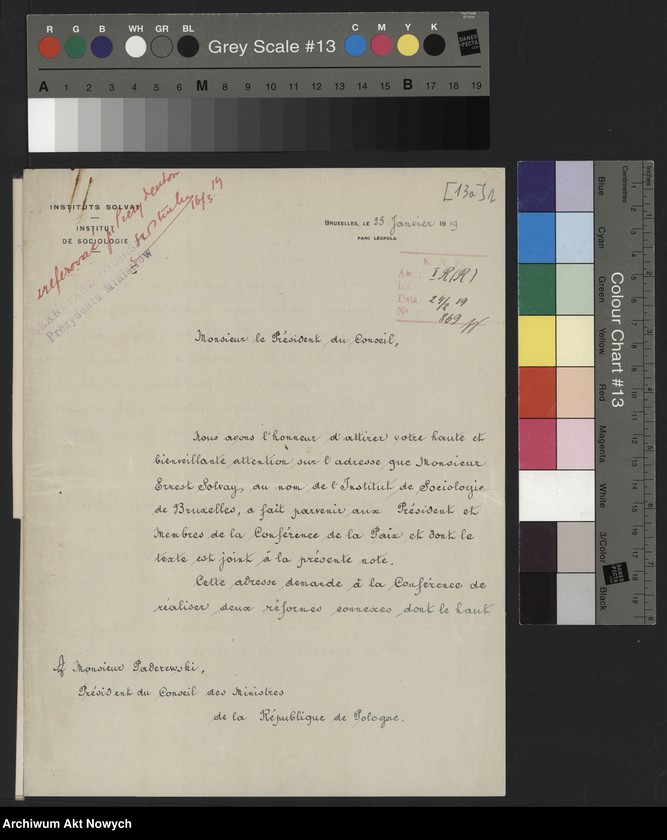 R G B WH GR BL Grey Scale #13 C M Y K
DANES PICTA
A 1 2 3 4 5 6 M 8 9 10 11 12 13 14 15 B 17 18 19
INSTITUTS SOLVAY
INSTITUT
DE SOCIOLOGIE
[13a] 1
BRUXELLES, LE 25 Janvier 1919
PARC LÉOPOLD
16/3 19
Prezydenta Ministrów
Data: 24/2 19
No 869
Monsieur le Président du Conseil,
Nous avons l'honneur d'attirer votre haute et
bienveillante attention sur l'adresse que Monsieur
Ernest Solvay, au nom de l'Institut de Sociologie
de Bruxelles, a fait parvenir aux Président et
Membres de la Conférence de la Paix et dont le
texte est joint à la présente note.
Cette adresse demande à la Conférence de
réaliser deux réformes connexes dont le haut
A Monsieur Paderewski,
Président du Conseil des Ministres
de la République de Pologne.
Colour Chart #13
Blue Cyan Green Yellow Red Magenta White 3/Color Black
Centimetres Inches
DANES PICTA
Archiwum Akt Nowych